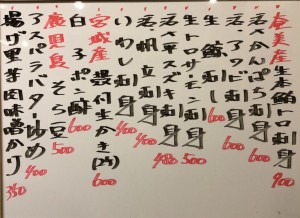 奄美産 生本鮪トロ刺身 900
活さかんぱち刺身
活アワビ刺身 600
生鯨刺身
生トロサーモン刺身 500
活〆スズキ刺身 480
活帆立刺身 400
いわし刺身 400
宮城産 殻付生かき(1ケ) 600
白子ポン酢 600
鹿児島 そら豆 500
アスパラバター炒め 400
揚げ里芋肉味噌かけ 350